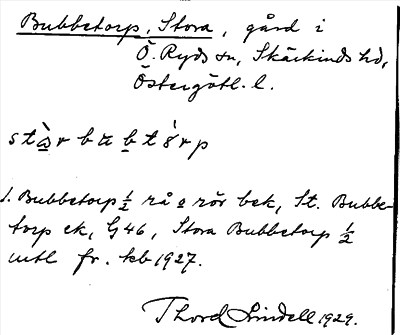 Bubbetorp, Stora, gård i
Ö. Ryds sn, Skärkinds hd,
Östergötl. l.
stàrbubtórp
1. Bubbetorp ½ rå o rör bek, St. Bubbe-
torp ek, G46, Stora Bubbetorp ½
mtl fr. kb 1927.
Thord Lindell 1929.